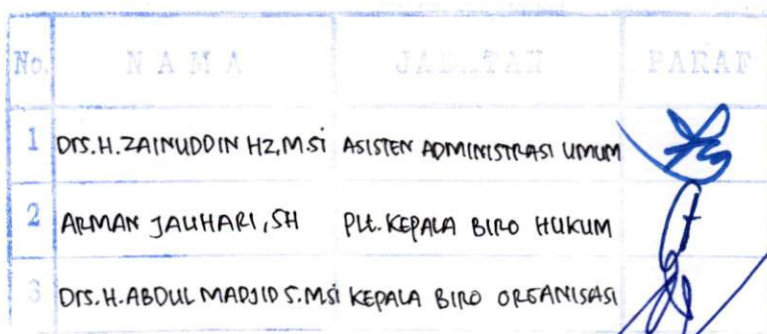 No. NAMA JABATAN PARAF
1 Drs. H. ZAINUDDIN HZ, M.Si ASISTEN ADMINISTRASI UMUM
2 ARMAN JAUHARI, SH Plt. KEPALA BIRO HUKUM
3 Drs. H. ABDUL MADJID S. MSi KEPALA BIRO ORGANISASI